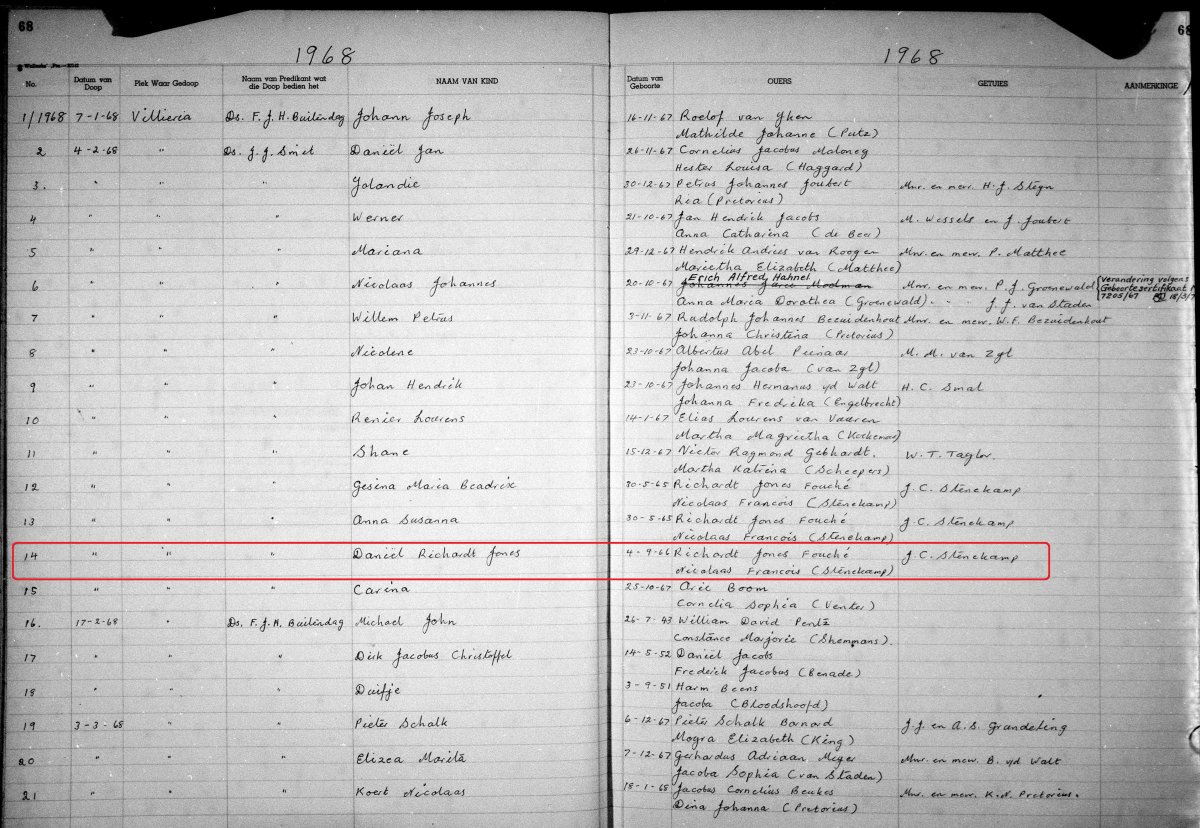 68
68
1968
1968
No.
Datum van Doop
Plek Waar Gedoop
Naam van Predikant wat die Doop bedien het
NAAM VAN KIND
Datum van Geboorte
OUERS
GETUIES
AANMERKINGE
1/1968 7-1-68 Villieria Ds. F. J. H. Buitendag Johann Joseph 16-11-67 Roelof van Yken
Mathilde Johanne (Putz)
2 4-2-68 " Ds. J. J. Smit Daniël Jan 26-11-67 Cornelius Jacobus Maloney
Hester Louisa (Haggard)
3. " " " Yolandie 30-12-67 Petrus Johannes Joubert Mnr. en mev. H. J. Steyn
Ria (Pretorius)
4 " " " Werner 21-10-67 Jan Hendrick Jacobs M. Wessels en J. Joubert
Anna Catharina (de Beer)
5 " " " Mariana 29-12-67 Hendrik Andries van Rooyen Mnr. en mev. P. Matthee
Marietha Elizabeth (Matthee)
Erich Alfred Hahnel
6 " " " Nicolaas Johannes 20-10-67 Johannes Mnr. en mev. P. J. Groenewald Verandering volgens
Anna Maria Dorothea (Groenewald) " " " J. J. van Staden Geboortesertifikaat
7205/67
7 " " " Willem Petrus 3-11-67 Rudolph Johannes Bezuidenhout Mnr. en mev. W. F. Bezuidenhout
Johanna Christina (Pretorius)
8 " " " Nicolene 23-10-67 Albertus Abel Pienaar M. M. van Zyl
Johanna Jacoba (van Zyl)
9 " " " Johan Hendrik 23-10-67 Johannes Hermanus v/d Walt H. C. Smal
Johanna Fredrika (Engelbrecht)
10 " " " Renier Lourens 14-1-67 Elias Lourens van Vuuren
Martha Magrietha (Koekemoer)
11 " " " Shane 15-12-67 Victor Raymond Gebhardt. W. T. Taylor.
Martha Katrina (Scheepers)
12 " " " Gesina Maria Beadrix 30-5-65 Richardt Jones Fouché J. C. Stenekamp
Nicolaas Francois (Stenekamp)
13 " " " Anna Susanna 30-5-65 Richardt Jones Fouché J. C. Stenekamp
Nicolaas Francois (Stenekamp)
14 " " " Daniël Richardt Jones 4-9-66 Richardt Jones Fouché J. C. Stenekamp
Nicolaas Francois (Stenekamp)
15 " " " Carina 25-10-67 Arie Boom
Cornelia Sophia (Venter)
16. 17-2-68 " Ds. F. J. H. Buitendag Michael John 26-7-43 William David Pentz
Constance Marjorie (Shemmans).
17 " " " Dirk Jacobus Christoffel 14-5-52 Daniël Jacobs
Frederick Jacobus (Benade)
18 " " " Duifje 3-9-51 Harm Beens
Jacoba (Bloodshoofd)
19 3-3-68 " " Pieter Schalk 6-12-67 Pieter Schalk Barnard J. J. en A. S. Grandeling
Moyra Elizabeth (King)
20 " " " Elizea Maritá 7-12-67 Gerhardus Adriaan Meyer Mnr. en mev. B. v/d Walt
Jacoba Sophia (van Staden)
21 " " " Koert Nicolaas 18-1-68 Jacobus Cornelius Beukes Mnr. en mev. K. N. Pretorius.
Dina Johanna (Pretorius)